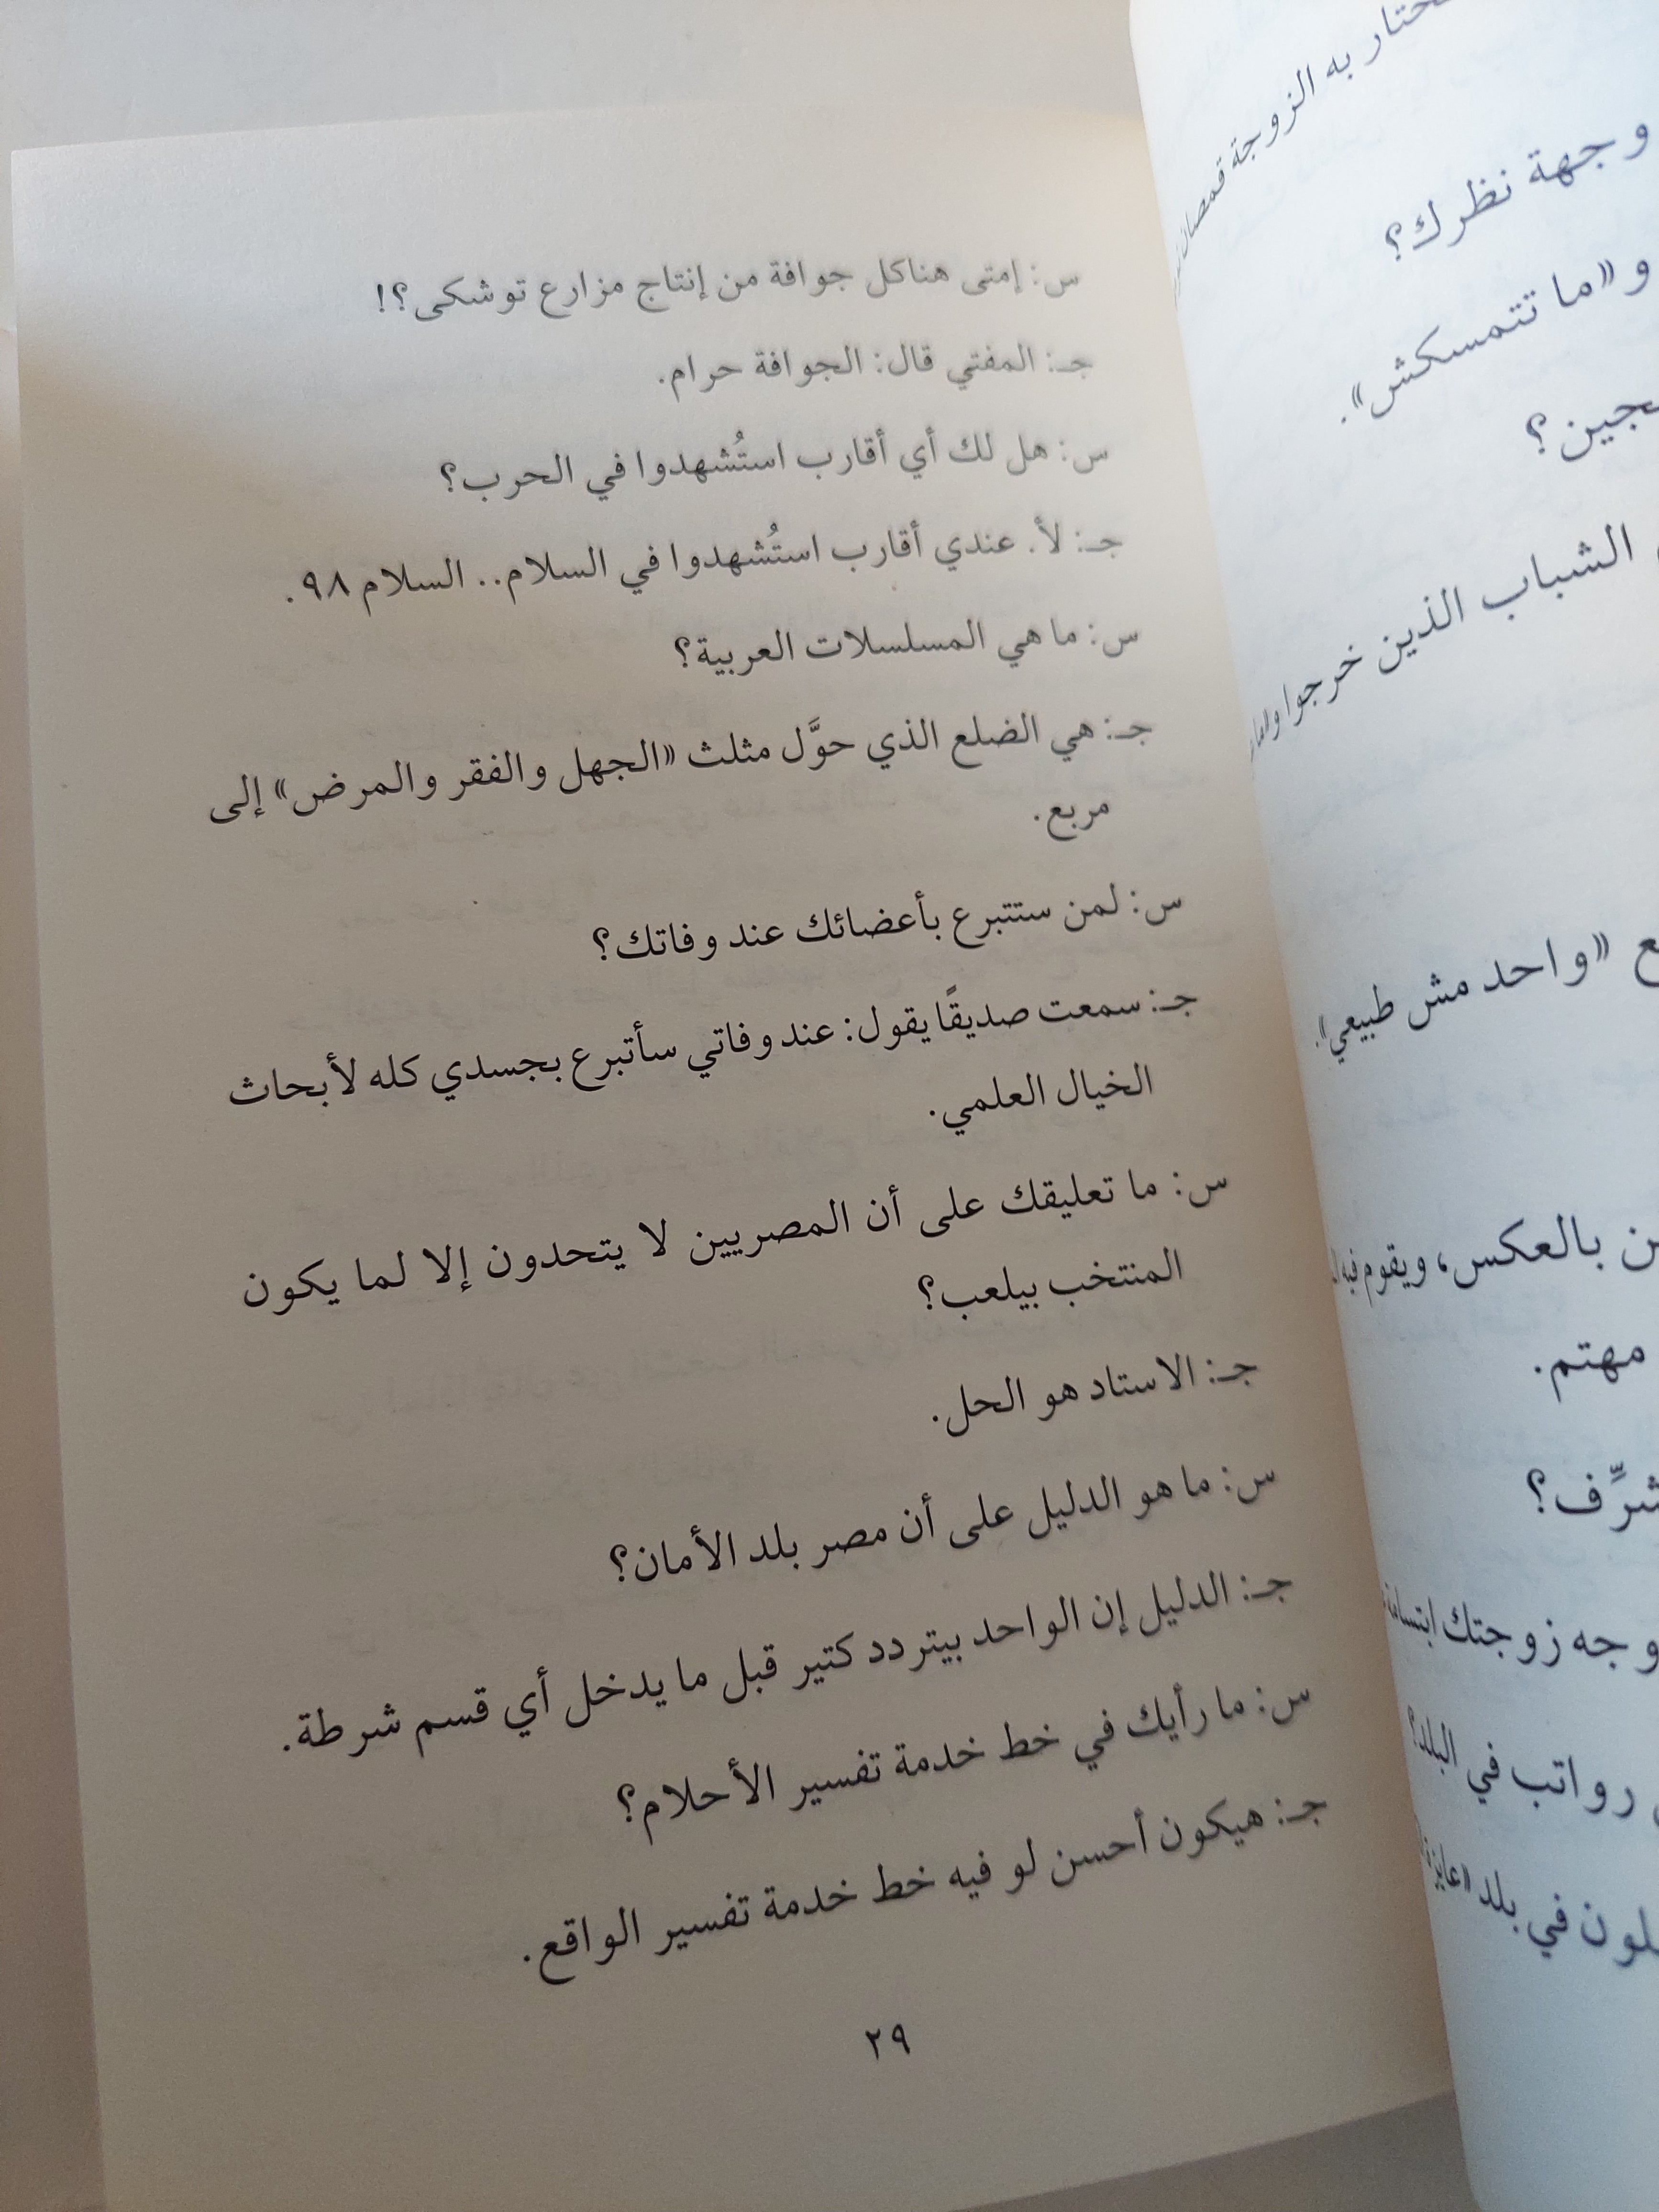 س: إمتى هناكل جوافة من إنتاج مزارع توشكى؟!
جـ: المفتي قال: الجوافة حرام.
س: هل لك أي أقارب استُشهدوا في الحرب؟
جـ: لأ. عندي أقارب استُشهدوا في السلام.. السلام ٩٨.
س: ما هي المسلسلات العربية؟
جـ: هي الضلع الذي حوَّل مثلث «الجهل والفقر والمرض» إلى
مربع.
س: لمن ستتبرع بأعضائك عند وفاتك؟
جـ: سمعت صديقًا يقول: عند وفاتي سأتبرع بجسدي كله لأبحاث
الخيال العلمي.
س: ما تعليقك على أن المصريين لا يتحدون إلا لما يكون
المنتخب بيلعب؟
جـ: الاستاد هو الحل.
س: ما هو الدليل على أن مصر بلد الأمان؟
جـ: الدليل إن الواحد بيتردد كتير قبل ما يدخل أي قسم شرطة.
س: ما رأيك في خط خدمة تفسير الأحلام؟
جـ: هيكون أحسن لو فيه خط خدمة تفسير الواقع.
٢٩
به الزوجة
وجهة نظرك؟
و«ما تتمسكش».
الشباب الذين خرجوا
«واحد مش طبيعي».
بالعكس، ويقوم فيه
مهتم.
وجه زوجتك
رواتب في البلد؟
في بلد